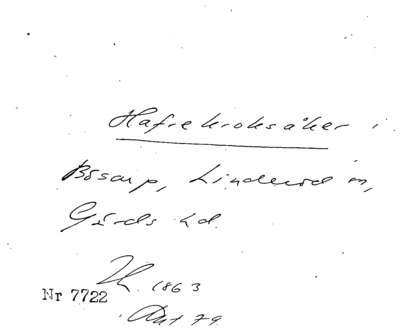 Hafrekroksåker i
Bösarp, Linderöd sn,
Gärds hd.
1863
Nr 7722
Ant 79